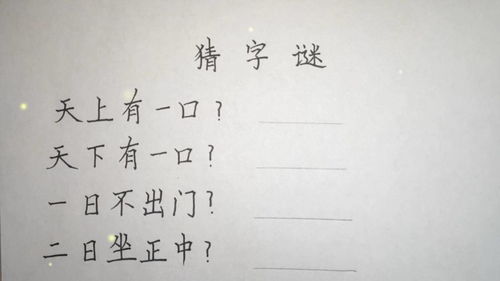 猜字谜
天上有一口?
天下有一口?
一日不出门?
二日坐正中?